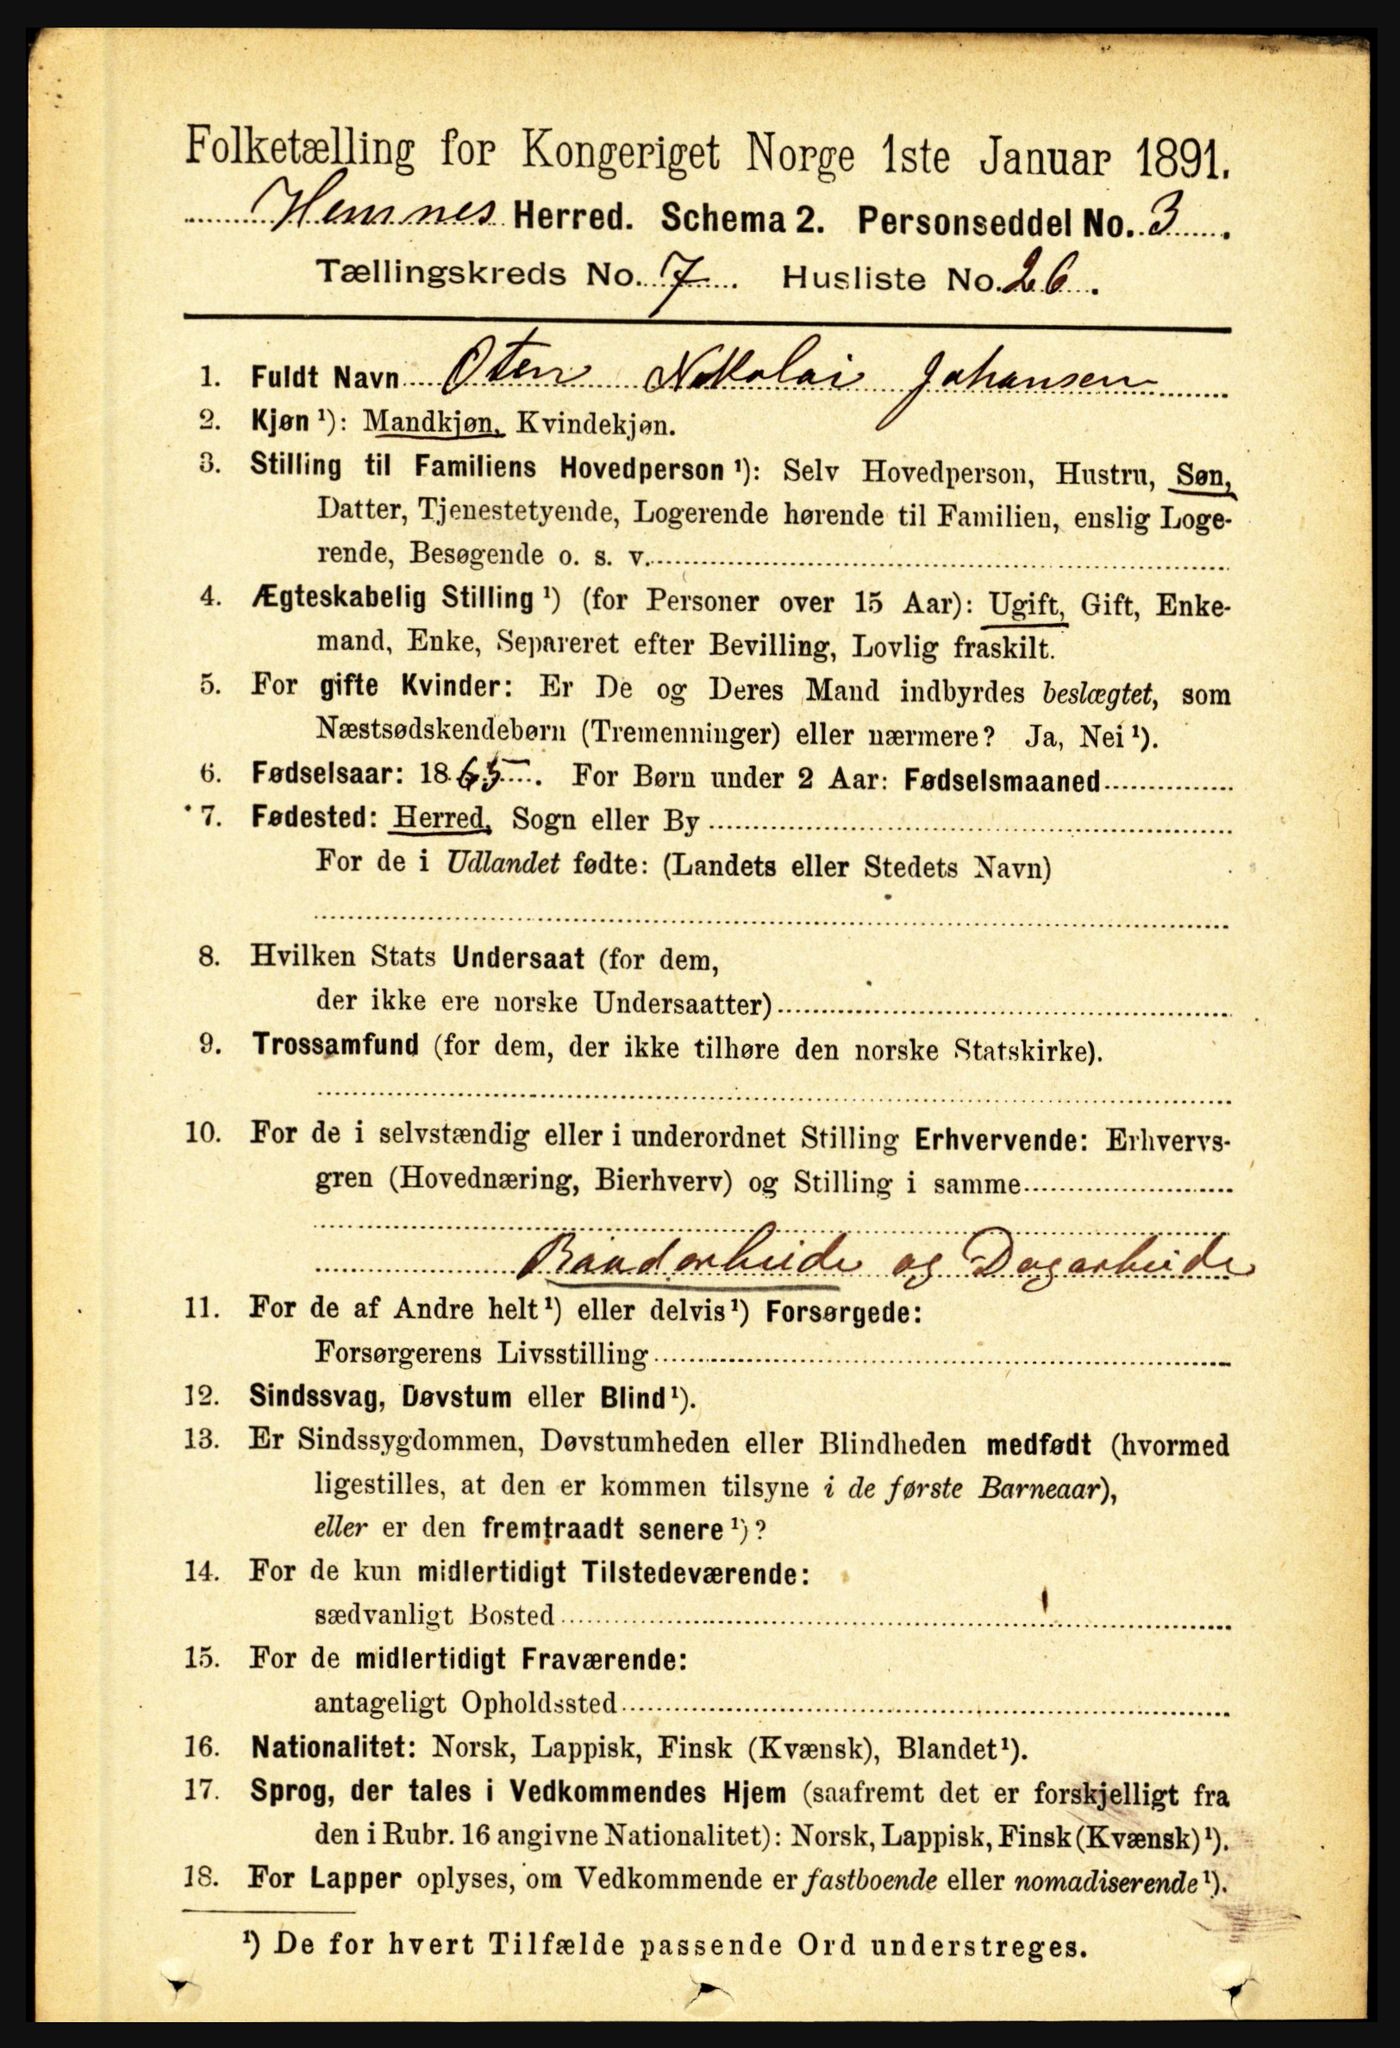 Folketælling for Kongeriget Norge 1ste Januar 1891.
Hemnes Herred. Schema 2. Personseddel No. 3.
Tællingskreds No. 7. Husliste No. 26.
1. Fuldt Navn Oten Nikolai Johansen
2. Kjøn¹): Mandkjøn, Kvindekjøn.
3. Stilling til Familiens Hovedperson¹): Selv Hovedperson, Hustru, Søn,
Datter, Tjenestetyende, Logerende hørende til Familien, enslig Loge-
rende, Besøgende o. s. v.
4. Ægteskabelig Stilling¹) (for Personer over 15 Aar): Ugift, Gift, Enke-
mand, Enke, Separeret efter Bevilling, Lovlig fraskilt.
5. For gifte Kvinder: Er De og Deres Mand indbyrdes beslægtet, som
Næstsødskendebørn (Tremenninger) eller nærmere? Ja, Nei¹).
6. Fødselsaar: 1865. For Børn under 2 Aar: Fødselsmaaned
7. Fødested: Herred, Sogn eller By
For de i Udlandet fødte: (Landets eller Stedets Navn)
8. Hvilken Stats Undersaat (for dem,
der ikke ere norske Undersaatter)
9. Trossamfund (for dem, der ikke tilhøre den norske Statskirke).
10. For de i selvstændig eller i underordnet Stilling Erhvervende: Erhvervs-
gren (Hovednæring, Bierhverv) og Stilling i samme
og Dagarbeide
11. For de af Andre helt¹) eller delvis¹) Forsørgede:
Forsørgerens Livsstilling
12. Sindssvag, Døvstum eller Blind¹).
13. Er Sindssygdommen, Døvstumheden eller Blindheden medfødt (hvormed
ligestilles, at den er kommen tilsyne i de første Barneaar),
eller er den fremtraadt senere¹)?
14. For de kun midlertidigt Tilstedeværende:
sædvanligt Bosted
15. For de midlertidigt Fraværende:
antageligt Opholdssted
16. Nationalitet: Norsk, Lappisk, Finsk (Kvænsk), Blandet¹).
17. Sprog, der tales i Vedkommendes Hjem (saafremt det er forskjelligt fra
den i Rubr. 16 angivne Nationalitet): Norsk, Lappisk, Finsk (Kvænsk)¹).
18. For Lapper oplyses, om Vedkommende er fastboende eller nomadiserende¹).
¹) De for hvert Tilfælde passende Ord understreges.